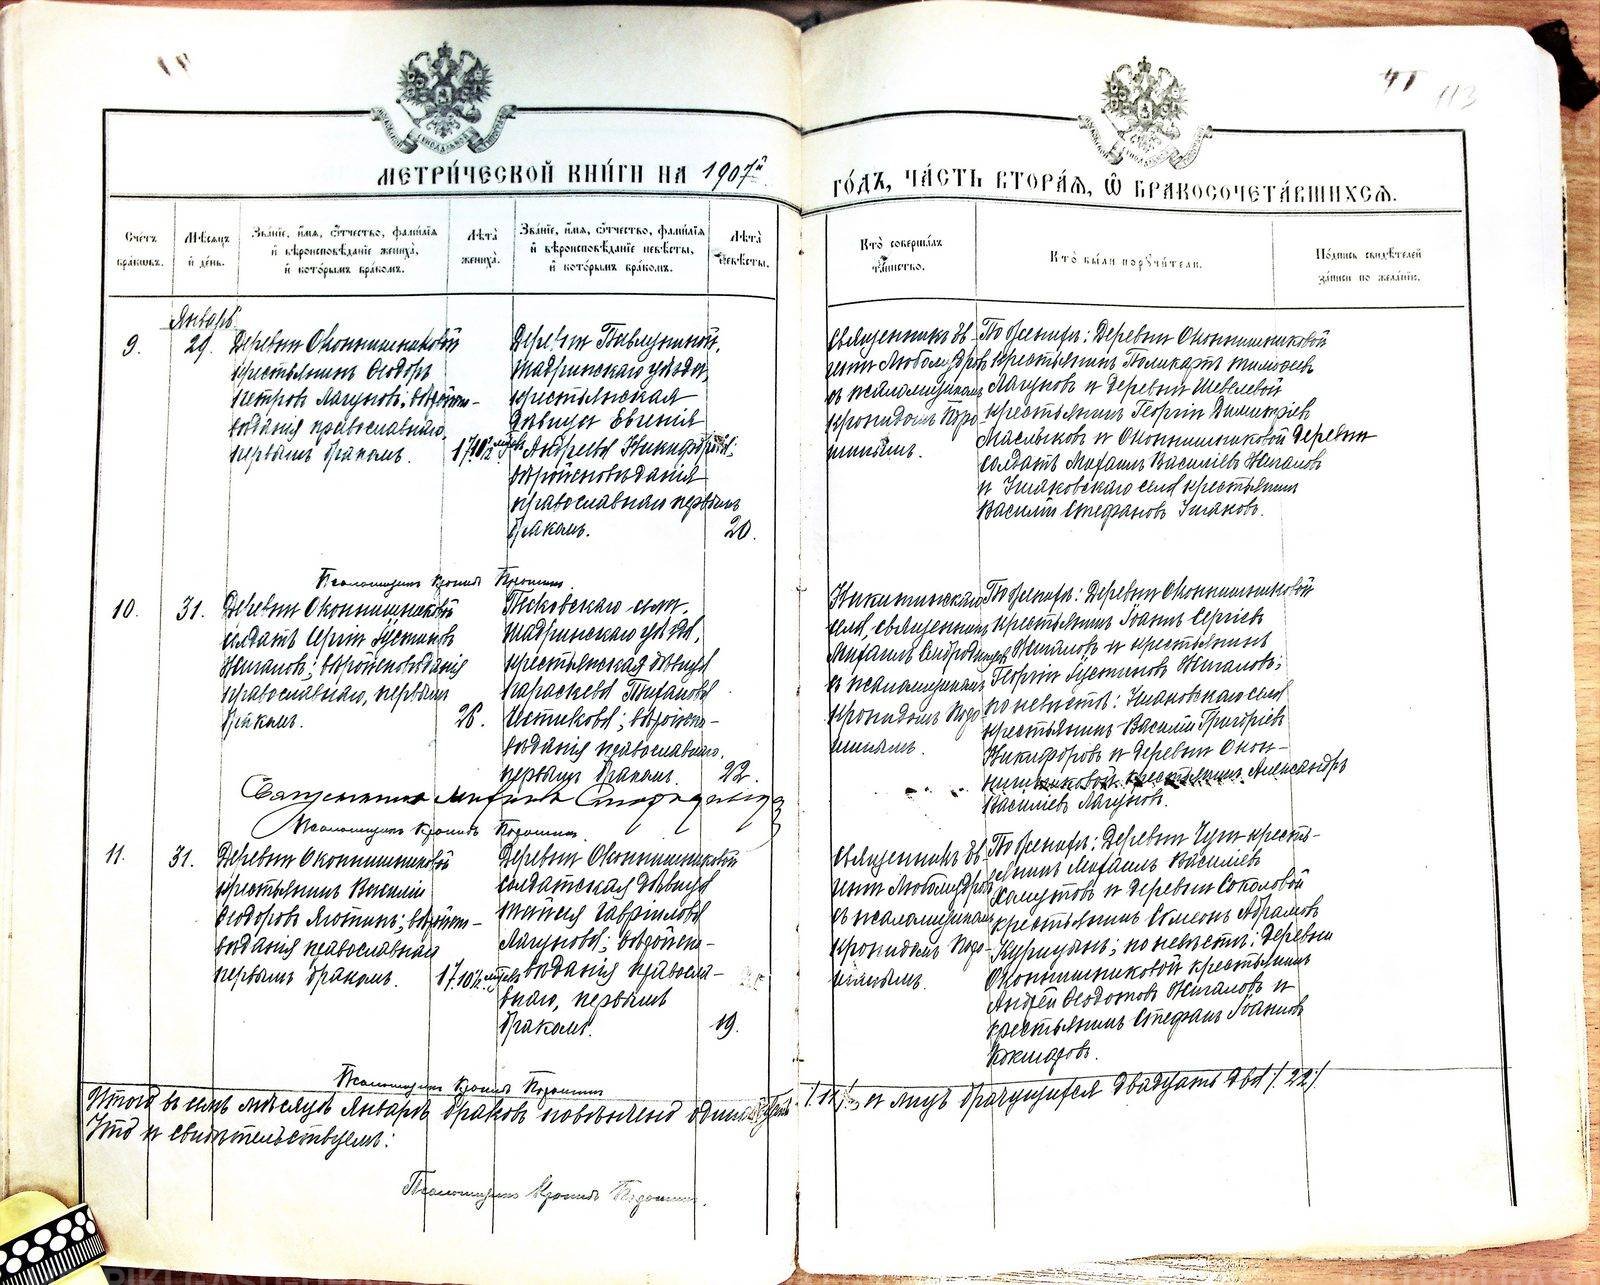 113
МЕТРИ́ЧЕСКОЙ КНИ́ГИ НА 1907й
ГО́ДЪ, ЧА́СТЬ ВТОРА́Ѧ, Ѡ҆ БРАКОСОЧЕТА́ВШИХСѦ.
Сче́тъ бра́ковъ.
Мѣ́сяцъ и де́нь.
Зва́нїе, и́мя, ѻ҆́тчество, фами́лїя и вѣроисповѣ́данїе жениха̀, и кото́рымъ бра́комъ.
Лѣ́та жениха̀.
Зва́нїе, и́мя, ѻ҆́тчество, фами́лїя и вѣроисповѣ́данїе невѣ́сты, и кото́рымъ бра́комъ.
Лѣ́та невѣ́сты.
Кто̀ соверша́лъ та́инство.
Кто̀ бы́ли порꙋчи́тели.
По́дпись свидѣ́телей за́писи по жела́нїю.
Январь
9.
29.
Деревни Оконишниковой
крестьянинъ Ѳеодоръ
Петровъ Лагуновъ; вѣроиспо-
вѣданія православнаго,
первымъ бракомъ.
17.10½
Деревни
Шадринскаго уѣзда,
крестьянская
дѣвица Евгенія
Андреева Никифорова;
вѣроисповѣданія
православнаго первымъ
бракомъ.
20.
Священникъ Ев-
геній Любомудровъ
съ псаломщикомъ
Кронидомъ Поро-
шинымъ.
По женихѣ: Деревни Оконишниковой
крестьянинъ Поликарпъ Тимоѳеевъ
Лагуновъ и деревни Шевелевой
крестьянинъ Георгій Димитріевъ
Масльковъ и Оконишниковой деревни
солдатъ Михаилъ Василіевъ Жигаловъ
и Ушаковскаго села крестьянинъ
Василій Стефановъ Ушаковъ.
Псаломщикъ Кронидъ Порошинъ
10.
31.
Деревни Оконишниковой
солдатъ Сергій Іустиновъ
Жигаловъ; вѣроисповѣданія
православнаго, первымъ
бракомъ.
26.
села,
Шадринскаго уѣзда,
крестьянская дѣвица
Параскева
вѣроиспо-
вѣданія православнаго,
первымъ бракомъ.
22.
Никитинскаго
села, священникъ
Михаилъ
съ псаломщикомъ
Кронидомъ Поро-
шинымъ.
По женихѣ: Деревни Оконишниковой
крестьянинъ Іоаннъ Сергіевъ
Жигаловъ и крестьянинъ
Георгій Іустиновъ Жигаловъ;
по невѣстѣ: Ушаковскаго села
крестьянинъ Василій Григоріевъ
Никифоровъ и деревни Окон-
ишниковой крестьянинъ Александръ
Василіевъ Лагуновъ.
Священникъ Михаилъ
Псаломщикъ Кронидъ Порошинъ
11.
31.
Деревни Оконишниковой
крестьянинъ Василій
Ѳеодоровъ вѣроиспо-
вѣданія православнаго
первымъ бракомъ.
17.10½
Деревни Оконишниковой
солдатская дѣвица
Таисія Гавріилова
Лагунова; вѣроиспо-
вѣданія правосла-
внаго, первымъ
бракомъ.
19.
Священникъ Ев-
геній Любомудровъ
съ псаломщикомъ
Кронидомъ Поро-
шинымъ.
По женихѣ: Деревни кресть-
янинъ Михаилъ Василіевъ
Хомутовъ и деревни Соколовой
крестьянинъ Симеонъ Абрамовъ
по невѣстѣ: Деревни
Оконишниковой крестьянинъ
Андрей Ѳеодотовъ Жигаловъ и
крестьянинъ Стефанъ Іоанновъ
Псаломщикъ Кронидъ Порошинъ
Итого въ семъ мѣсяцѣ Январѣ браковъ повѣнчано одиннадцать /11/ и лицъ брачущихся двадцать два /22/
Что и свидѣтельствуемъ:
Псаломщикъ Кронидъ Порошинъ.